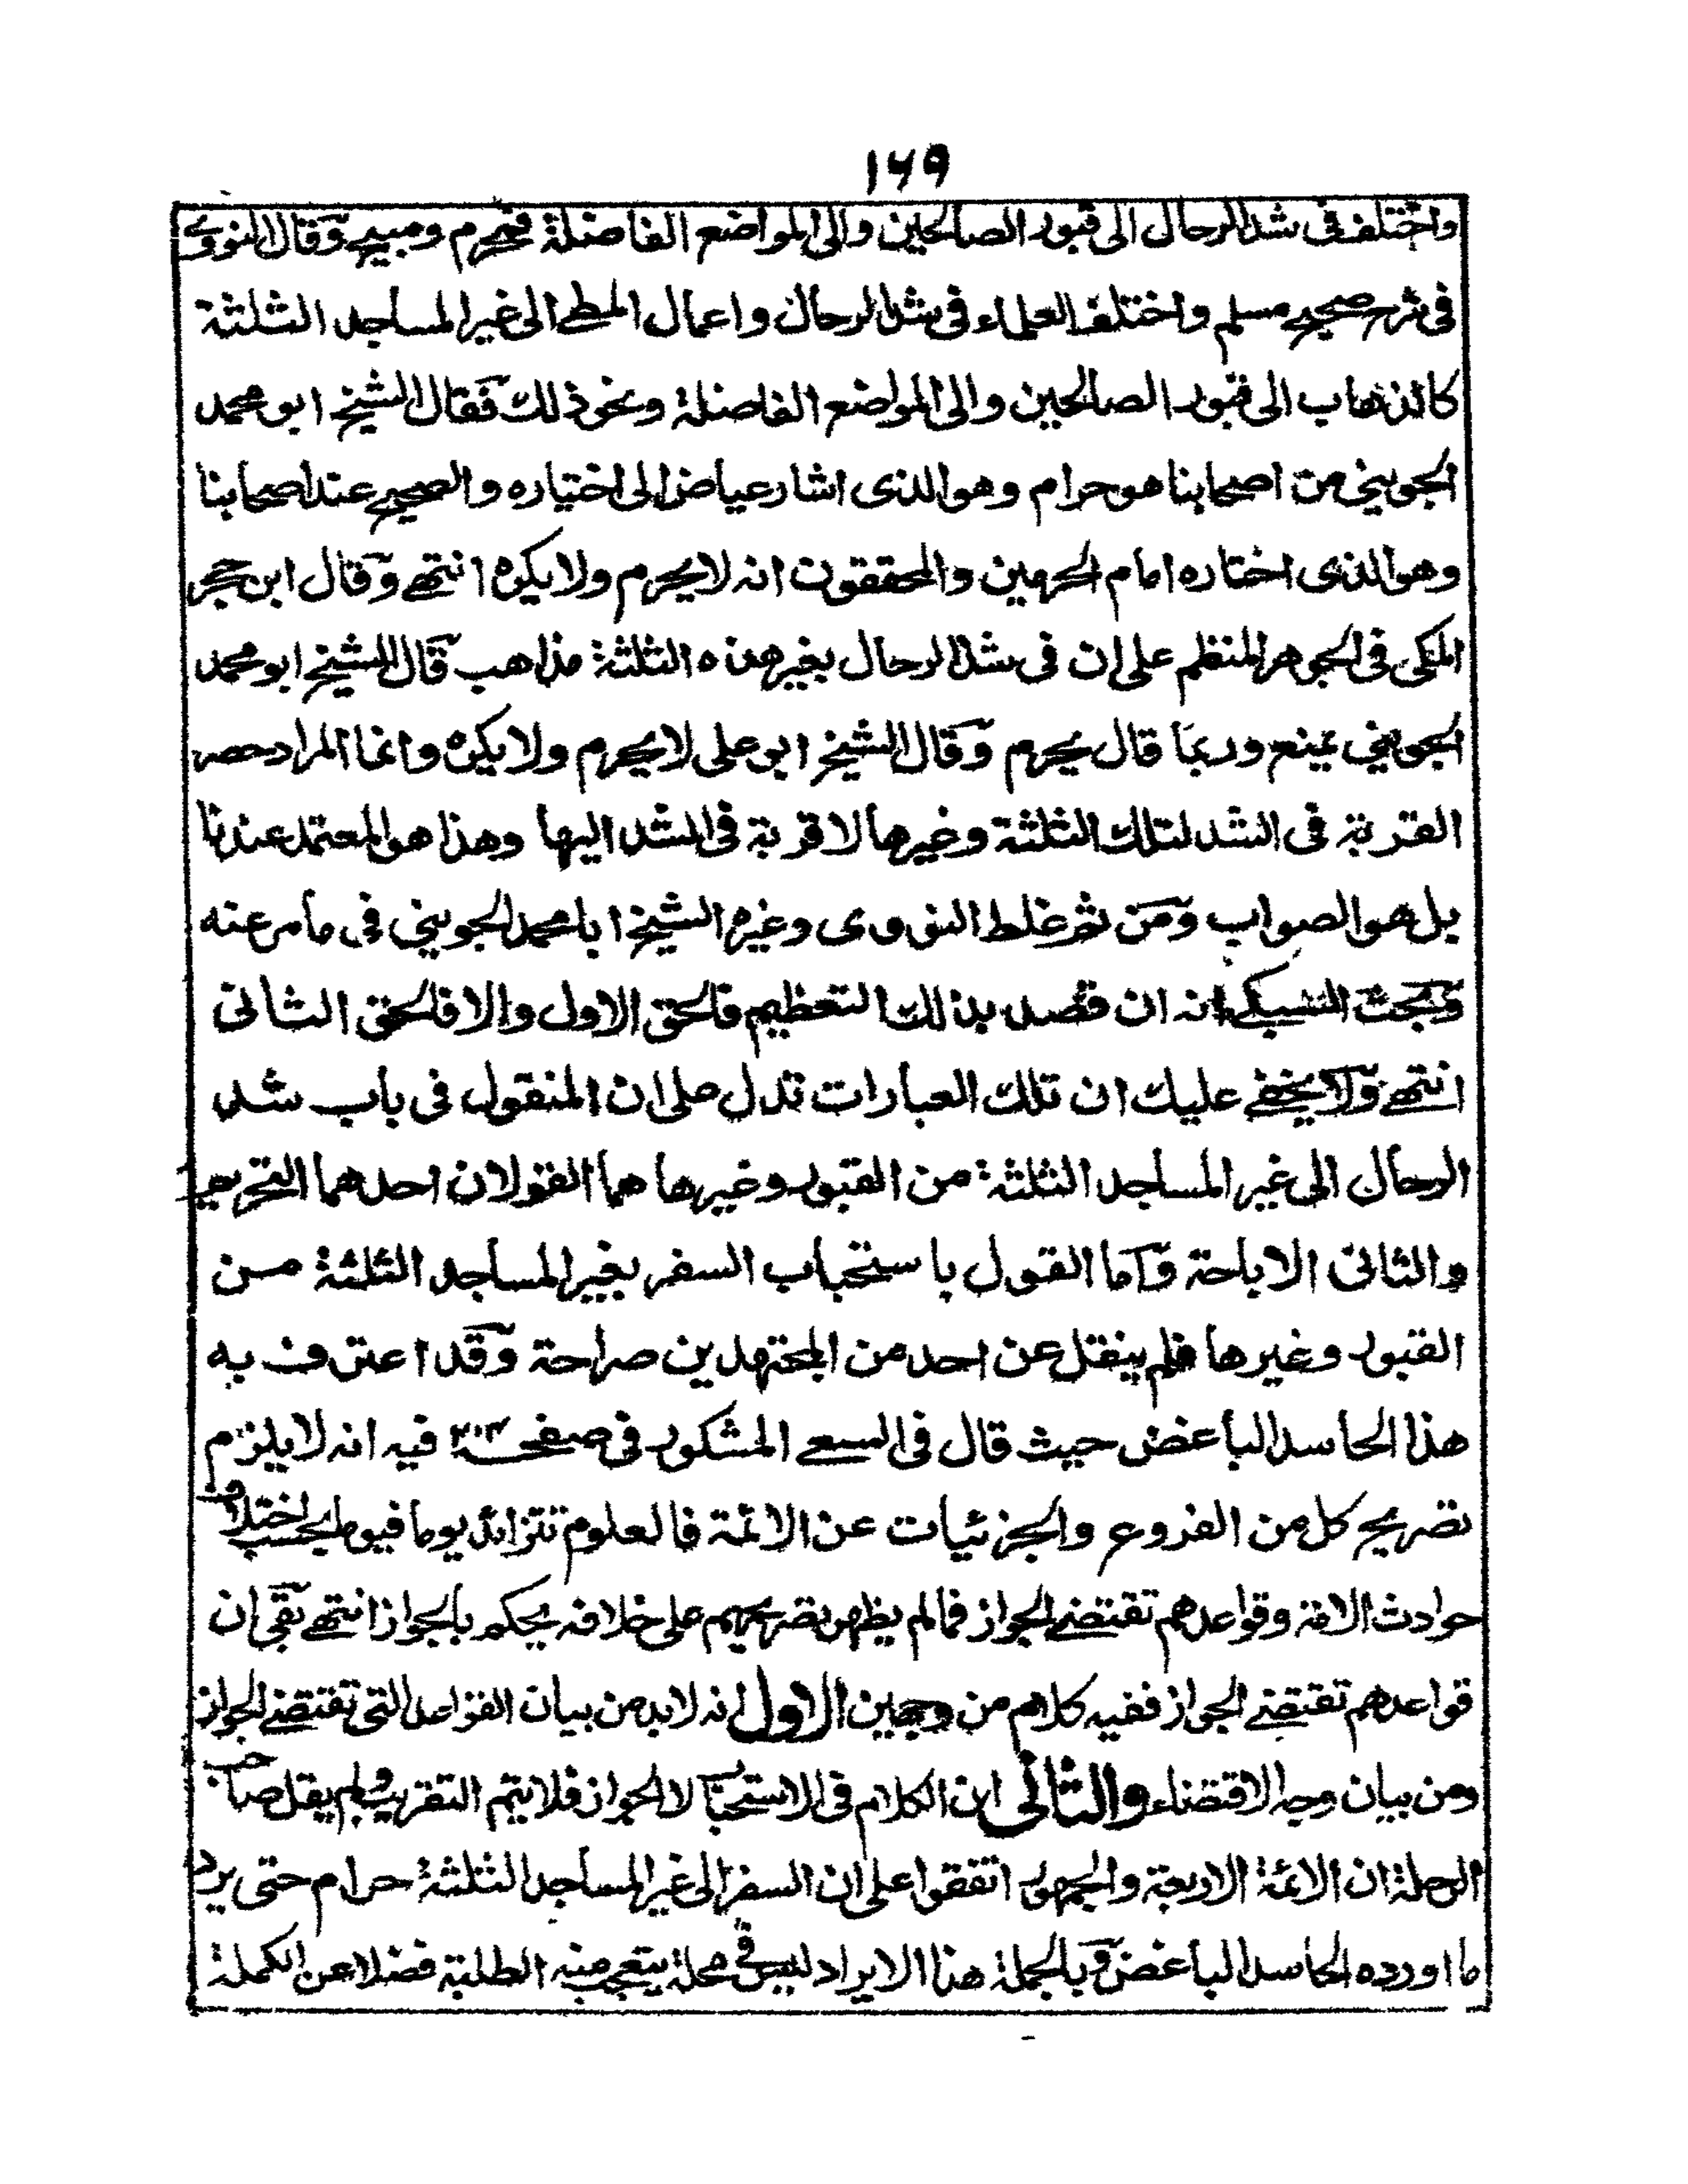 ١٦٩
واختلف فى شد الرحال الى قبور الصالحين والى المواضع الفاضلة فمحرم ومبيح وقال النووى
فى شرح صحيح مسلم واختلف العلماء فى شد الرحال واعمال المطى الى غير المساجد الثلثة
كالذهاب الى قبور الصالحين والى المواضع الفاضلة ونحو ذلك فقال الشيخ ابو محمد
الجوينى من اصحابنا هو حرام وهو الذى اشار عياض الى اختياره والصحيح عند اصحابنا
وهو الذى اختاره امام الحرمين والمحققون انه لا يحرم ولا يكره انتهى وقال ابن حجر
المكى فى الجوهر المنظم على ان فى شد الرحال بغير هذه الثلثة مذاهب قال الشيخ ابو محمد
الجوينى يمنع وربما قال يحرم وقال الشيخ ابو على لا يحرم ولا يكره وانما المراد حصر
القربة فى الشد لتلك الثلثة وغيرها لا قربة فى الشد اليها وهذا هو المعتمد عندنا
بل هو الصواب ومن ثم غلط النووى وغيره الشيخ ابا محمد الجوينى فى ما مر عنه
وبحث السبكى انه ان قصد بذلك التعظيم فالحق الاول والا فالحق الثانى
انتهى ولا يخفى عليك ان تلك العبارات تدل على ان المنقول فى باب شد
الرحال الى غير المساجد الثلثة من القبور وغيرها هما القولان احدهما التحريم
والثانى الاباحة واما القول باستحباب السفر بغير المساجد الثلثة من
القبور وغيرها فلم ينقل عن احد من المجتهدين صراحة وقد اعترف به
هذا الحاسد الباغض حيث قال فى السعى المشكور فى صفحة فيه انه لا يلزم
تصريح كل من الفروع والجزئيات عن الائمة فالعلوم تتزائد يوما فيوما بحسب اختلاف
حوادث الامة وقواعدهم تقتضى الجواز فمالم يظهر تصريحهم على خلافه يحكم بالجواز انتهى بقى ان
قواعدهم تقتضى الجواز ففيه كلام من وجهين الاول انه لابد من بيان القواعد التى تقتضى الجواز
ومن بيان وجه الاقتضاء والثانى ان الكلام فى الاستحباب لا الجواز فلا يتم التقريب ولم يقل صاحب
الرحلة ان الائمة الاربعة والجمهور اتفقوا على ان السفر الى غير المساجد الثلثة حرام حتى يرد
ما اورده الحاسد الباغض وبالجملة هذا الايراد ليس فى محله يتعجب منه الطلبة فضلا عن الكملة